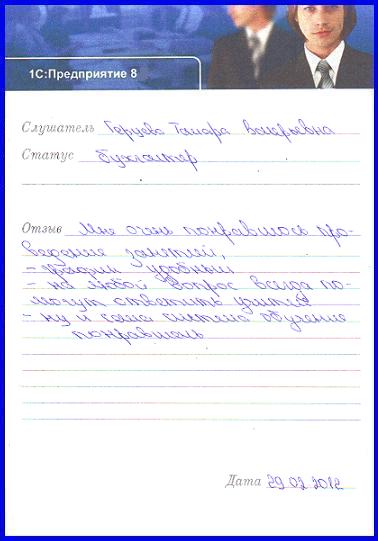 1С:Предприятие 8
Слушатель Герцева Тамара Валерьевна
Статус бухгалтер
Отзыв Мне очень понравилось про-
ведение занятий,
- график удобный
- на любой вопрос всегда по-
могут ответить учителя
- ну и сама система обучение
понравилась
Дата 29.02.2012